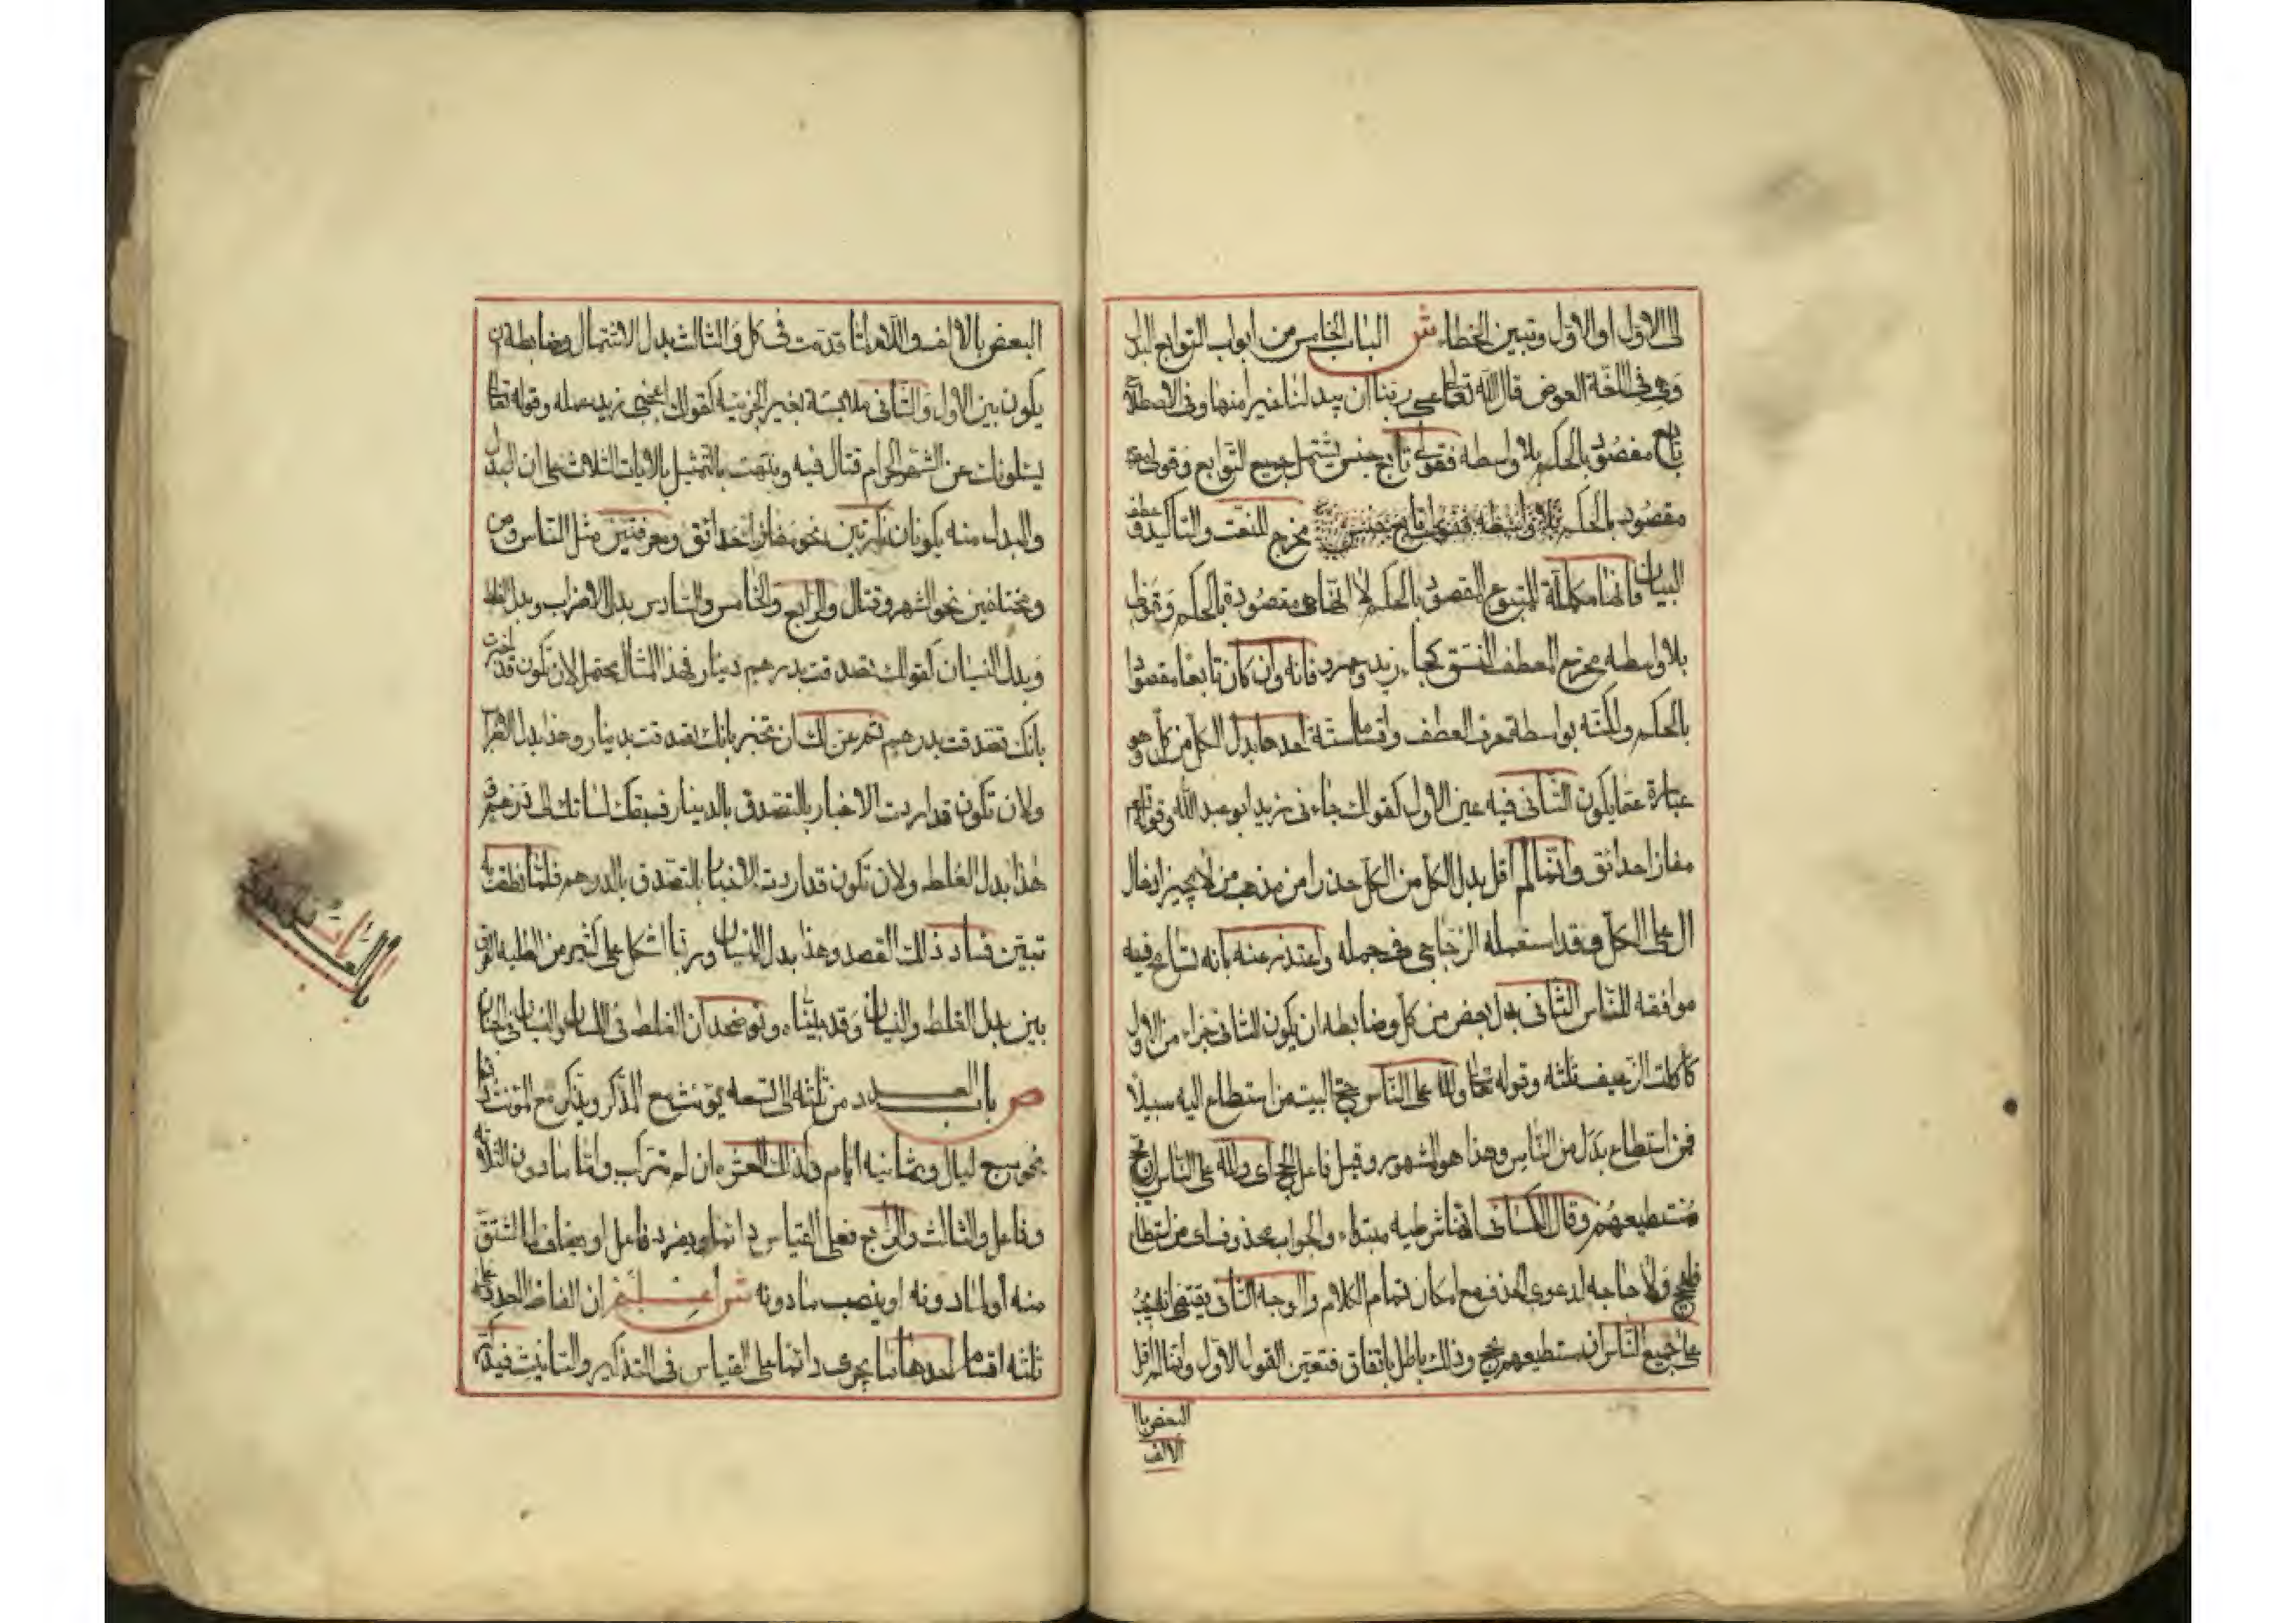 الى الاول او الاول وتبين الخطاء ش الباب الخامس من ابواب التوابع البدل
وهو فى اللغة العوض قال الله تعالى عسى ربنا ان يبدلنا خيرا منها وفى الاصطلاح
تابع مقصود بالحكم بلا واسطه فقولى تابع جنس يشتمل جميع التوابع وقولى
مقصود بالحكم مخرج للنعت والتاكيد وعطف
البيان فانها مكملة للمتبوع المقصود بالحكم لا انها هى مقصودة بالحكم وقولى
بلا واسطه مخرج لعطف النسق كجاء زيد وعمرو فانه وان كان تابعا مقصودا
بالحكم ولكنه بواسطة حرف العطف واقسامه ستة احدها بدل الكل من كل وهو
عبارة عما يكون الثانى فيه عين الاول كقولك جاءنى زيد ابو عبد الله وقوله تع
مفازا حدائق وانما لم اقل بدل الكل من الكل حذرا من مذهب من لا يجيز ادخال
ال على الكل وقد استعمله الزجاجى فى جمله واعتذر عنه بانه تسامح فيه
موافقه للناس الثانى بدل بعض من كل وضابطه ان يكون الثانى جزاء من الاول
كاكلت الرغيف ثلثه وقوله تعالى ولله على الناس حج البيت من استطاع اليه سبيلا
فمن استطاع بدل من الناس وهذا هو المشهور وقيل فاعل الحج اى ولله على الناس ان يحج
مستطيعهم وقال الكسائى انها شرطيه مبتداء والجواب محذوف اى من استطاع
فليحج ولا حاجه لدعوى الحذف مع امكان تمام الكلام والوجه الثانى يقتضى انه يجب
على جميع الناس ان مستطيعهم يحج وذلك باطل باتفاق فتعين القول الاول وانما لم اقل
البعض با
الالف
البعض بالالف واللام لما قدمت فى كل والثالث بدل الاشتمال وضابطه ان
يكون بين الاول والثانى ملابسة بغير الجزئيه كقولك اعجبنى زيد علمه وقوله تعالى
يسئلونك عن الشهر الحرام قتال فيه ونبهت بالتمثيل بالايات الثلاث على ان البدل
والمبدل منه يكونان نكرتين نحو مفازا حدائق ومعرفتين مثل الناس ومن
ومختلفين نحو الشهر وقتال والرابع والخامس والسادس بدل الاضراب وبدل الغلط
وبدل النسيان كقولك تصدقت بدرهم دينار فهذا المثال يحتمل لان تكون قد اخبرت
بانك تصدقت بدرهم ثم عن لك ان تخبر بانك تصدقت بدينار وهذا بدل الاضراب
ولان تكون قد اردت الاخبار بالتصدق بالدينار فسبقك لسانك الى درهم و
هذا بدل الغلط ولان تكون قد اردت الاخبار بالتصدق بالدرهم فلما نطقت به
تبين فساد ذلك القصد وهذا بدل النسيان وربما اشكل على كثير من الطلبه الفرق
بين بدل الغلط والنسيان وقد بيناه ونوضحه ان الغلط فى اللسان والنسيان فى الجنان
ص باب العدد من ثلثه الى تسعه يؤنث مع المذكر ويذكر مع المؤنث دائما
نحو سبع ليال وثمانيه ايام وكذلك العشره ان لم تركب واما ما دون الثلاثه
وفاعل والثالث والرابع فعلى القياس دائما ويفرد فاعل او يضاف لما اشتق
منه او لما دونه او ينصب ما دونه ش اعلم ان الفاظ العدد على
ثلثه اقسام احدها ما يجرى دائما على القياس فى التذكير والتانيث فيذكر
باب العدد